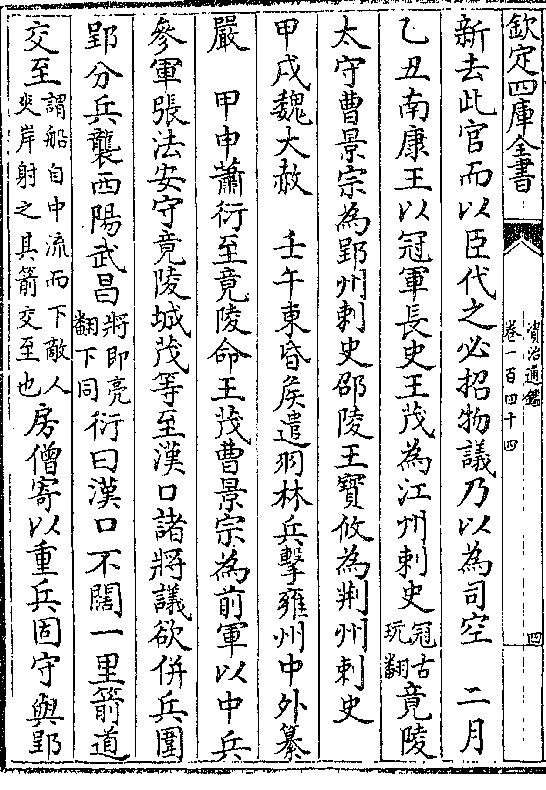 欽定四庫全書
資治通鑑
卷一百四十四
四
新去此官而以臣代之必招物議乃以為司空　二月
乙丑南康王以冠軍長史王茂為江州刺史冠古玩翻竟陵
太守曹景宗為郢州刺史邵陵王寶攸為荆州刺史
甲戌魏大赦　壬午東昏矦遣羽林兵擊雍州中外纂
嚴　甲申蕭衍至竟陵命王茂曹景宗為前軍以中兵
參軍張法安守竟陵城茂等至漢口諸將議欲併兵圍
郢分兵襲西陽武昌將即亮翻下同衍曰漢口不闊一里箭道
交至謂船自中流而下敵人夾岸射之其箭交至也房僧寄以重兵固守與郢